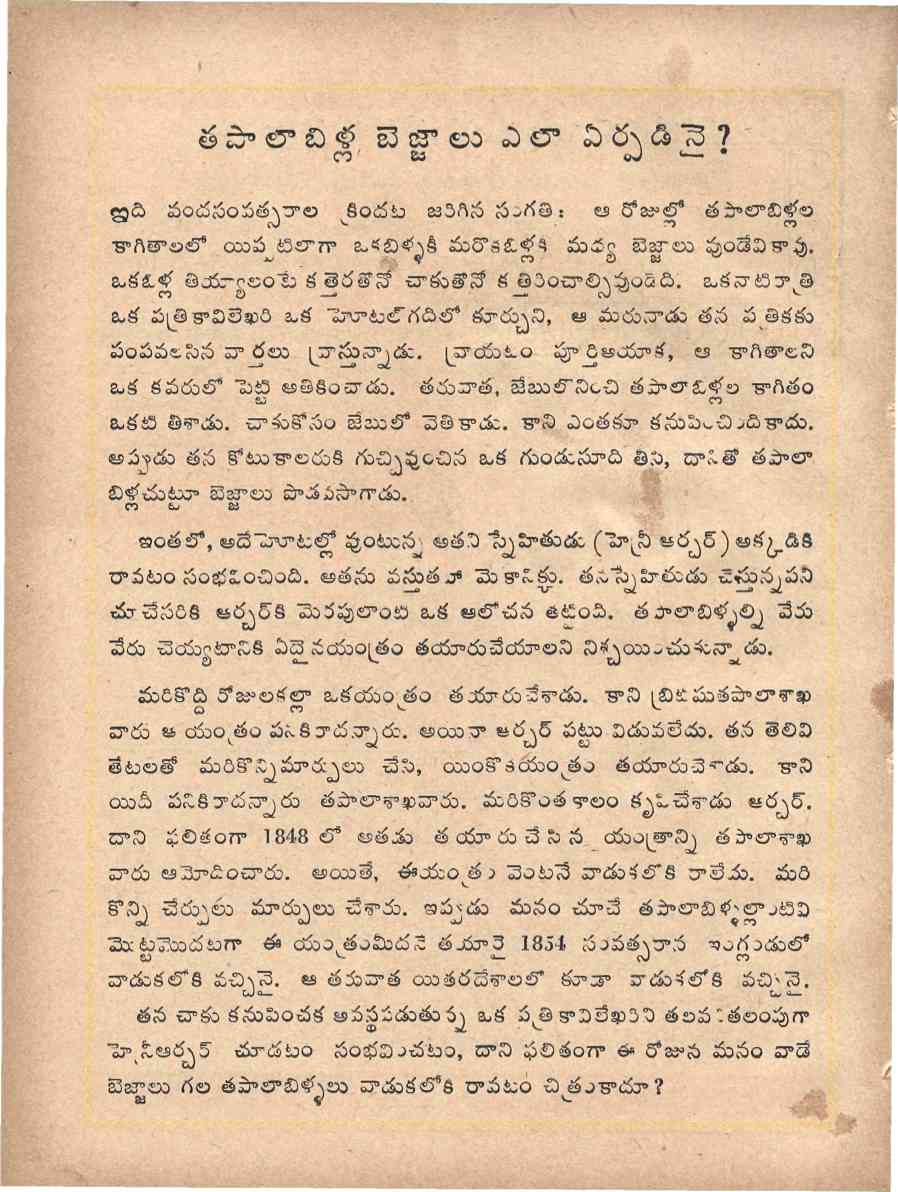 తపాలాబిళ్ల బెజ్జాలు ఎలా ఏర్పడినై?
ఇది వందసంవత్సరాల క్రిందట జరిగిన సంగతి: ఆ రోజుల్లో తపాలాబిళ్లల
కాగితాలలో యిప్పటిలాగా ఒకబిళ్ళకీ మరొకబిళ్లకీ మధ్య బెజ్జాలు వుండేవికావు.
ఒకబిళ్ల తియ్యాలంటే కత్తెరతోనో చాకుతోనో కత్తిరించాల్సివుండేది. ఒకనాటిరాత్రి
ఒక పత్రికావిలేఖరి ఒక హెూటల్ గదిలో కూర్చుని, ఆ మరునాడు తన పత్రికకు
పంపవలసిన వార్తలు వ్రాస్తున్నాడు. వ్రాయటం పూర్తిఅయాక, ఆ కాగితాలని
ఒక కవరులో పెట్టి అతికించాడు. తరువాత, జేబులోనించి తపాలాబిళ్లల కాగితం
ఒకటి తీశాడు. చాకుకోసం జేబులో వెతికాడు. కాని ఎంతకూ కనుపించిందికాదు.
అప్పుడు తన కోటుకాలరుకి గుచ్చివుంచిన ఒక గుండుసూది తీసి, దానితో తపాలా
బిళ్లచుట్టూ బెజ్జాలు పొడవసాగాడు.
ఇంతలో, అదేహెూటల్లో వుంటున్న అతని స్నేహితుడు (హెన్రీ ఆర్చర్) అక్కడికి
రావటం సంభవించింది. అతను వస్తుతహా మెకానిక్కు. తనస్నేహితుడు చేస్తున్నపని
చూచేసరికి ఆర్చర్‌కి మెరపులాంటి ఒక ఆలోచన తట్టింది. తపాలాబిళ్ళల్ని వేరు
వేరు చెయ్యటానికి ఏదైనయంత్రం తయారుచేయాలని నిశ్చయించుకున్నాడు.
మరికొద్ది రోజులకల్లా ఒకయంత్రం తయారుచేశాడు. కాని బ్రిటిషుతపాలాశాఖ
వారు ఆ యంత్రం పనికిరాదన్నారు. అయినా ఆర్చర్ పట్టు విడువలేదు. తన తెలివి
తేటలతో మరికొన్నిమార్పులు చేసి, యింకొకయంత్రం తయారుచేశాడు. కాని
యిదీ పనికిరాదన్నారు తపాలాశాఖవారు. మరికొంతకాలం కృషిచేశాడు ఆర్చర్.
దాని ఫలితంగా 1848 లో అతడు తయారుచేసిన యంత్రాన్ని తపాలాశాఖ
వారు ఆమోదించారు. అయితే, ఈయంత్రం వెంటనే వాడుకలోకి రాలేదు. మరి
కొన్ని చేర్పులు మార్పులు చేశారు. ఇప్పుడు మనం చూచే తపాలాబిళ్ళల్లాంటివి
మొట్టమొదటగా ఈ యంత్రంమీదనే తయారై 1854 సంవత్సరాన ఇంగ్లండులో
వాడుకలోకి వచ్చినై. ఆ తరువాత యితరదేశాలలో కూడా వాడుకలోకి వచ్చినై.
తన చాకు కనుపించక అవస్థపడుతున్న ఒక పత్రికావిలేఖరిని తలవనితలంపుగా
హెన్రీఆర్చర్ చూడటం సంభవించటం, దాని ఫలితంగా ఈ రోజున మనం వాడే
బెజ్జాలు గల తపాలాబిళ్ళలు వాడుకలోకి రావటం చిత్రంకాదూ?